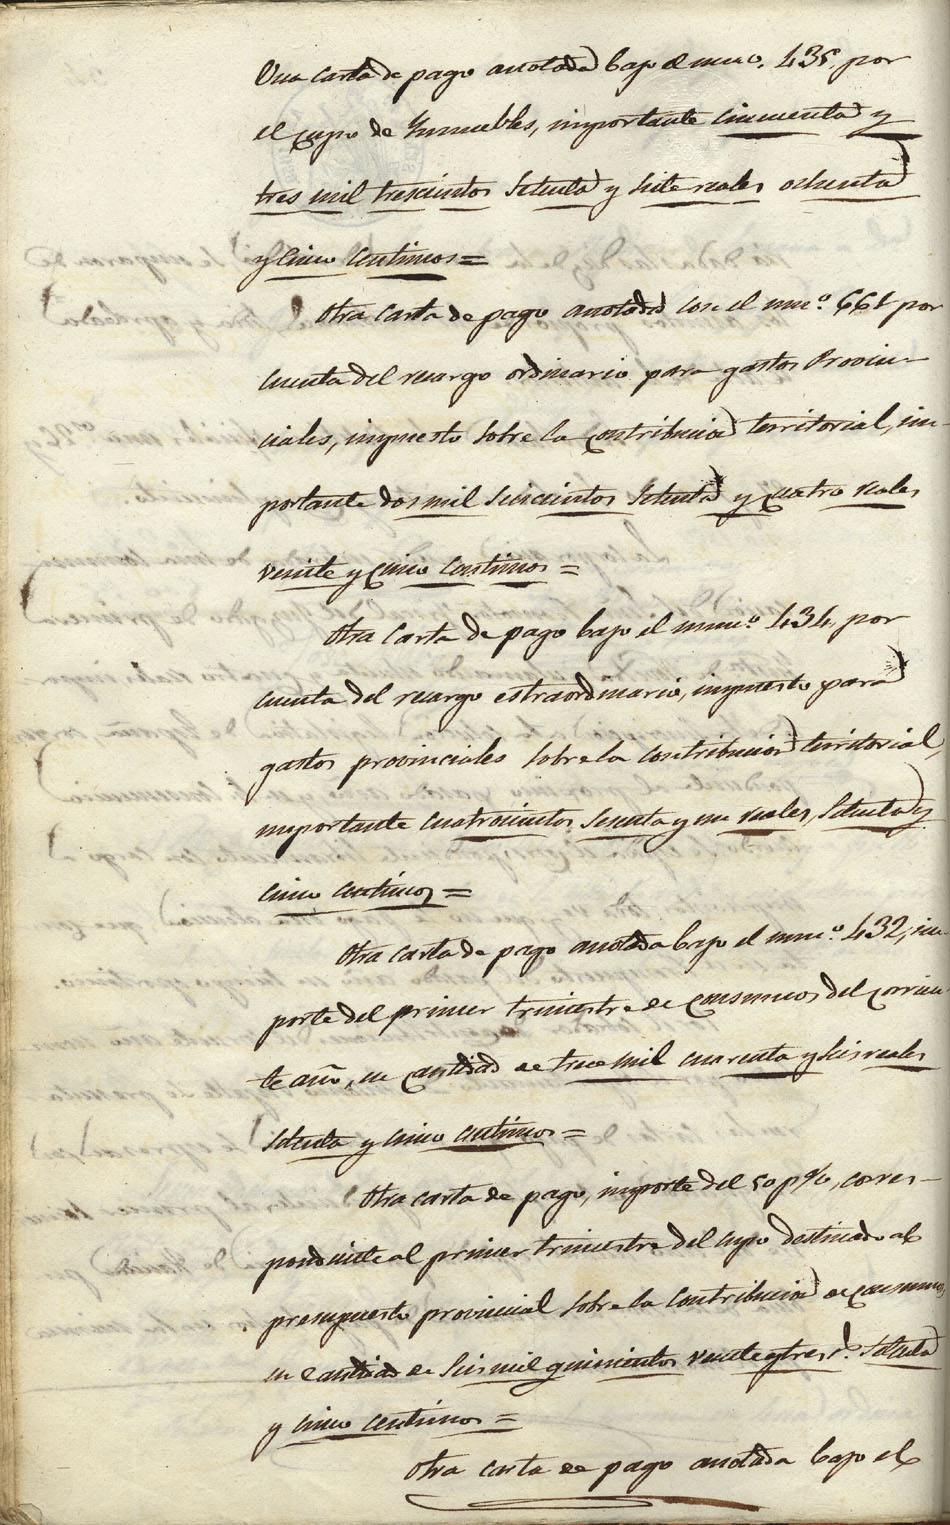 Una carta de pago anotada bajo el num.º 435, por
el cupo de Ynmuebles, importante cincuenta y
tres mil trescientos setenta y siete reales ochenta
y cinco centimos =
Otra carta de pago anotada con el num.º 661 por
cuenta del recargo ordinario para gastos Provin-
ciales, impuesto sobre la contribucion territorial, im-
portante dos mil seiscientos setenta y cuatro reales
veinte y cinco centimos =
Otra carta de pago bajo el num.º 434, por
cuenta del recargo estraordinario, impuesto para
gastos provinciales sobre la contribucion territorial,
importante cuatrocientos sesenta y un reales, setenta y
cinco centimos =
Otra carta de pago anotada bajo el num.º 432, im-
porte del primer trimestre de consumos del corrien-
te año, en cantidad de trece mil cuarenta y seis reales
setenta y cinco centimos =
Otra carta de pago, importe del 50 p%, corres-
pondiente al primer trimestre del cupo destinado al
presupuesto provincial sobre la contribucion de consumos,
en cantidad de seis mil quinientos veinte y tres r.s setenta
y cinco centimos =
Otra carta de pago anotada bajo el